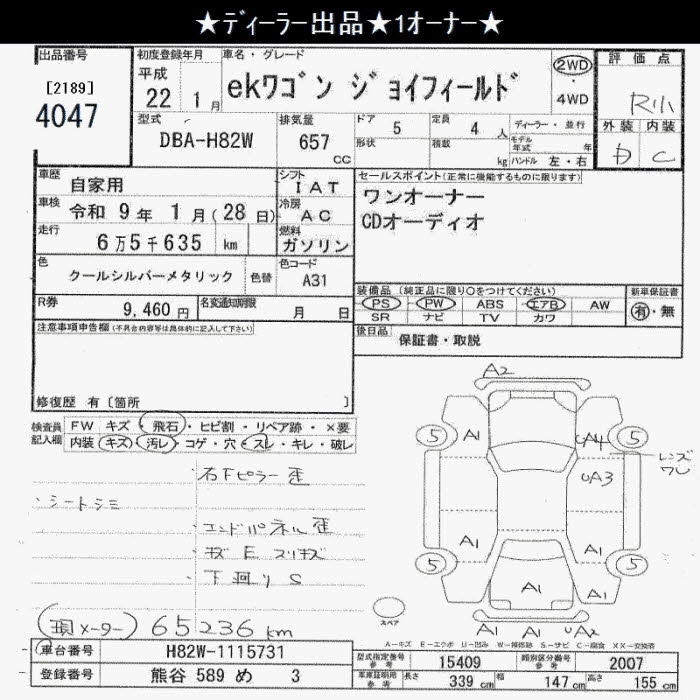 ★ディーラー出品★1オーナー★
出品番号
[2189]
4047
初度登録年月
平成
22年 1月
車名・グレード
ekワゴン ジョイフィールド
2WD
・
4WD
評価点
R小
外装 内装
D C
型式
DBA-H82W
排気量
657
cc
ドア 5
定員 4人
形状
積載 kg
ディーラー・並行
モデル年式 年
ハンドル 左・右
車歴
自家用
車検
令和 9年 1月(28日)
走行
6万5千635 km
シフト
IAT
冷房
AC
燃料
ガソリン
セールスポイント(正常に機能するものに限ります)
ワンオーナー
CDオーディオ
色
クールシルバーメタリック
色替
色コード
A31
R券
9,460円
名変通知期限
月 日
装備品(純正品に限り○をつけてください)
PS PW ABS エアB AW
SR ナビ TV カワ
新車保証書
有・無
後日品
保証書・取説
注意事項申告欄(不具合内容等は具体的に記入して下さい)
修復歴 有〔箇所 〕
検査員記入欄
FW キズ・飛石・ヒビ割・リペア跡・×要
内装 キズ・汚レ・コゲ・穴・スレ・キレ・破レ
右Fピラー歪
・シートシミ
エンドパネル歪
キズ E スリキズ
下廻りS
(現メーター) 65236 km
A2
5 A1 UA4 5
レンズワレ
UA3
A1 A1
5 A1 A1 5
A1 A1 UA2
スペア
A-キズ E-エクボ U-凹み W-補修跡 S-サビ C-腐食 XX-交換済
車台番号
H82W-1115731
登録番号
熊谷 589 め 3
型式指定番号 参考
15409
類別区分番号 参考
2007
車庫証明用 参考
長さ 339 cm
幅 147 cm
高さ 155 cm